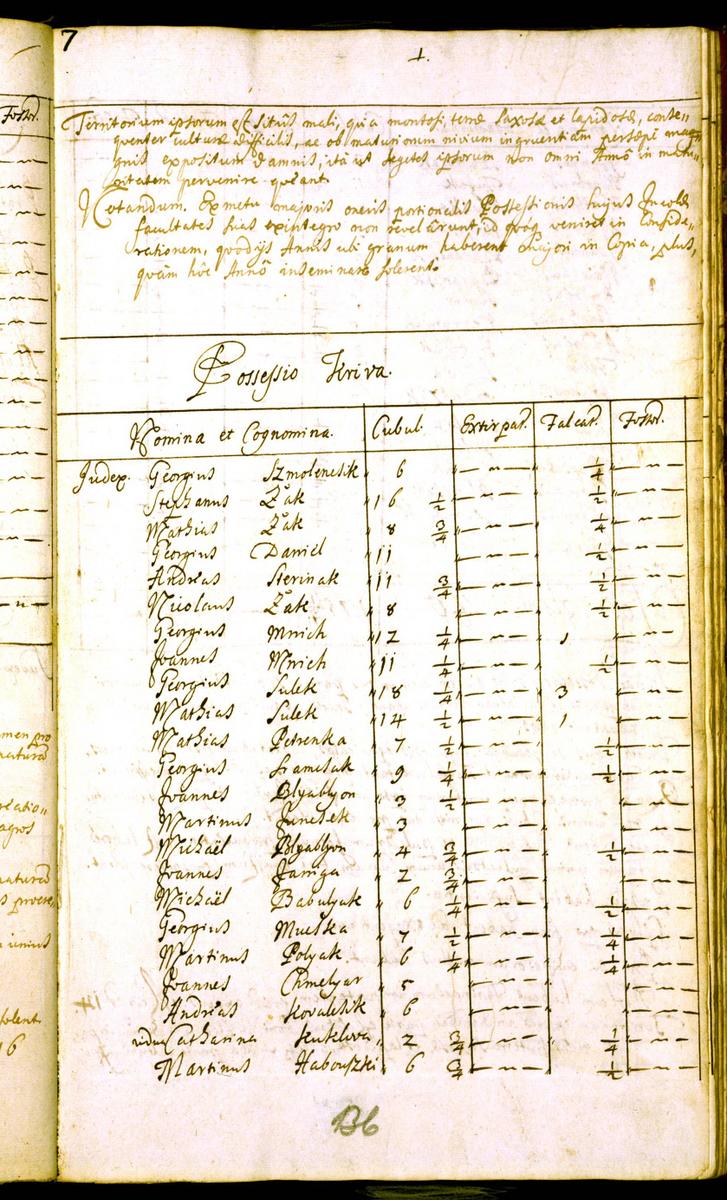 7
Fossor.
Territorium ipsorum est situs mali, quia montosi, terræ saxosæ et lapidosæ, conse-
quenter culturæ difficilis, ac ob maturiorem nivium ingruentiam persæpè mag-
nis expositum damnis, ità ut segetes ipsorum non omni Annô in matu-
ritatem pervenire queant.
Notandum. Ex metu majoris oneris portionalis Possessionis hujus Incolæ
facultates suas ex integro non revelârunt, id quoq veniret in Conside-
rationem, quod ijs Annis ubi granum haberent majori in Copia, plus,
quàm hôc Annô inseminare solerent.
Possessio Kriva.
Nomina et Cognomina. Cubul. Extirpat. Falcat. Fossor.
Judex. Georgius Szmolencsik 6 1/4
Stephanus Žak 16 1/2 1/2
Mathias Žak 8 3/4 1/4
Georgius Daniel 11 1/2
Andreas Sterinak 11 3/4 1/2
Nicolaus Žak 8 1/2
Georgius Mnich 12 1/4 1
Joannes Mnich 11 1/4 1/2
Georgius Sulek 18 1/4 3
Mathias Sulek 14 1/2 1
Mathias Petrenka 7 1/2 1/2
Georgius 9 1/4 1/2
Joannes Blyablyon 3 1/2
Martinus Junesek 3
Michaël Blyablyon 4 3/4 1/2
Joannes Janiga 2 3/4
Michaël Babulyak 6 1/4 1/2
Georgius 7 1/2 1/4
Martinus Polyak 6 1/4 1/4
Joannes Chmelyar 5
Andreas Kovalcsik 6
vidua Catharina Kuklova 2 3/4 1/4
Martinus Habouszki 6 3/4 1/2
136